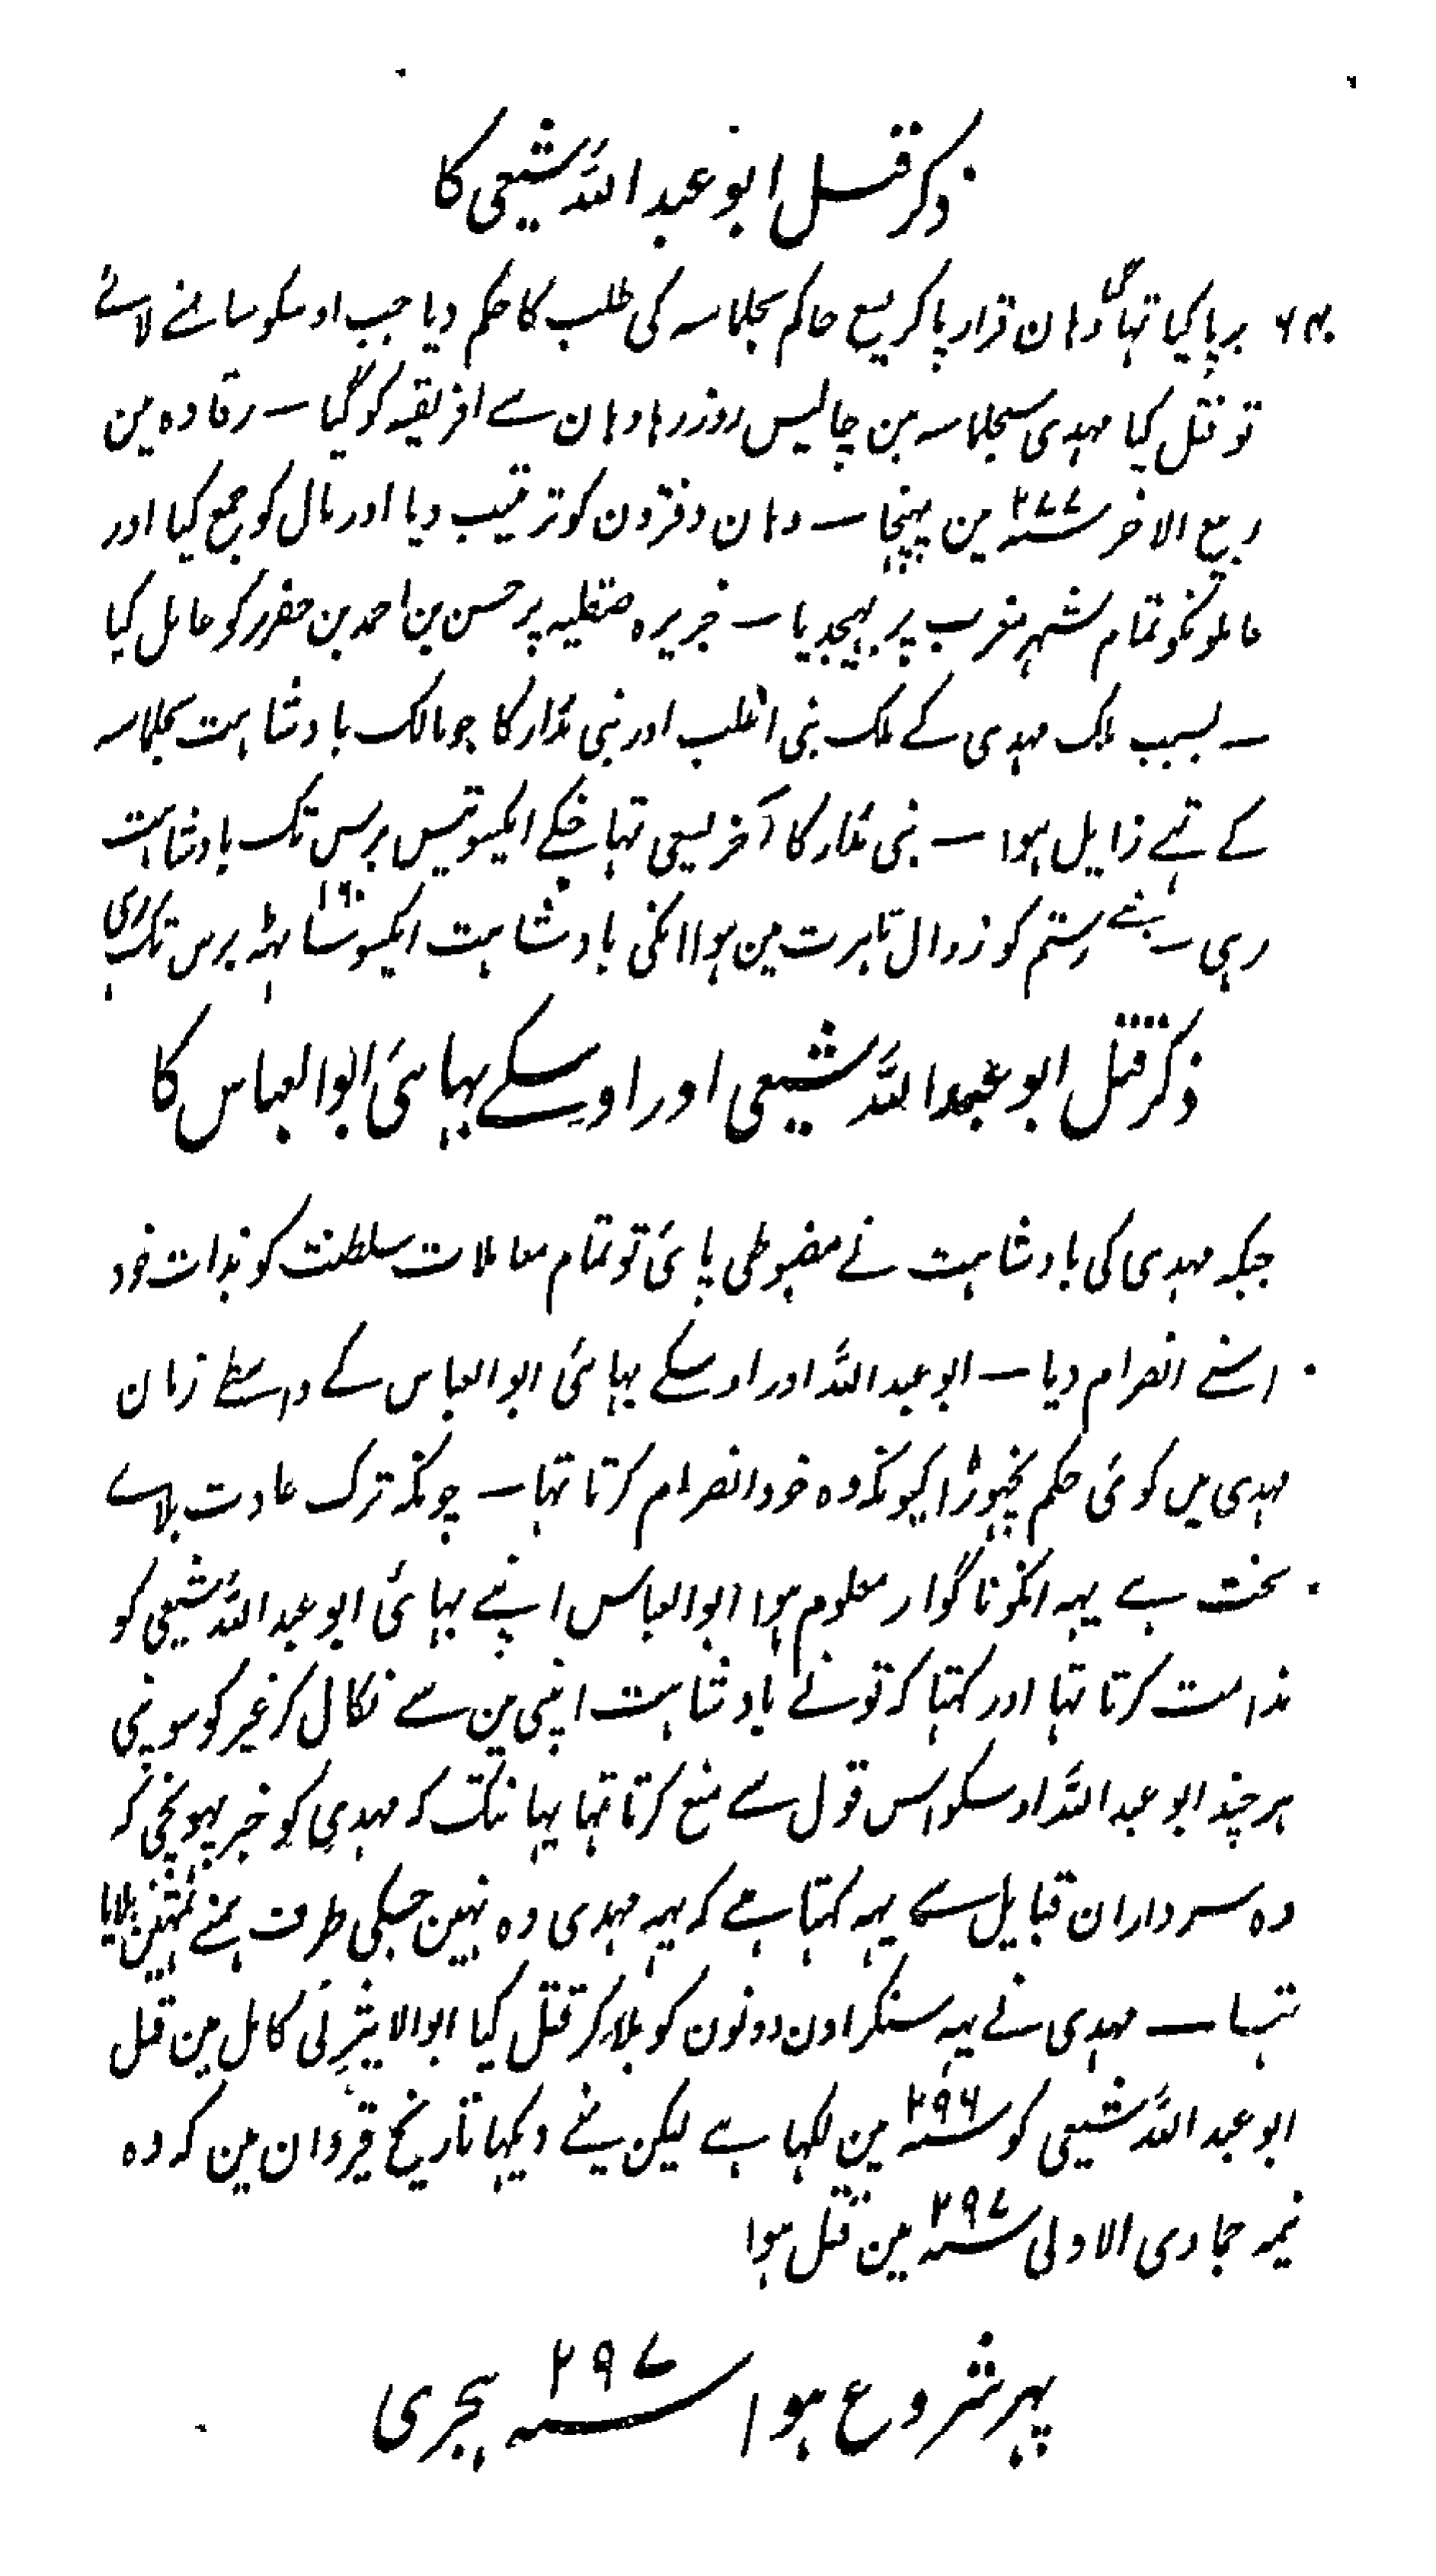 ذکر قتل ابو عبد اللہ شیعی کا
۶۴۰ برپا کیا تہا وہان قرار پاکر یسع حاکم سجلماسہ کی طلب کا حکم دیا جب اوسکو سامنے لائے
تو قتل کیا مہدی سجلماسہ مین چالیس روز رہا وہان سے افریقہ کو گیا ـ رقادہ مین
ربیع الاخر سنہ ۲۷۷ مین پہنچا ـ وہان دفترون کو ترتیب دیا اور مال کو جمع کیا اور
عاملونکو تمام شہر مغرب پر بہیجدیا ـ جزیرہ صقلیہ پر حسن بن احمد بن کو عامل کیا
ـ بسبب ملک مہدی کے ملک بنی اغلب اور بنی مدرار کا جو مالک بادشاہت سجلماسہ
کے تہے زایل ہوا ـ بنی مدرار کا آخر یسع تہا جنکے ایکسو تیس برس تک بادشاہت
رہی ـ بنے رستم کو زوال تاہرت مین ہوا انکی بادشاہت ایکسو ساٹہہ ۱۶۰ برس تک رہی
ذکر قتل ابو عبد اللہ شیعی اور اوسکے بہائی ابو العباس کا
جبکہ مہدی کی بادشاہت نے مضبوطی پائی تو تمام معاملات سلطنت کو بذات خود
اسنے انصرام دیا ـ ابو عبد اللہ اور اوسکے بہائی ابو العباس کے واسطے زمان
مہدی میں کوئی حکم نچہوڑا کیونکہ وہ خود انصرام کرتا تہا ـ چونکہ ترک عادت بلاے
سخت ہے یہہ انکو ناگوار معلوم ہوا ابو العباس اپنے بہائی ابو عبد اللہ شیعی کو
ندامت کرتا تہا اور کہتا کہ تونے بادشاہت اپنی مین سے نکال کر غیر کو سونپی
ہر چند ابو عبد اللہ اوسکو اس قول سے منع کرتا تہا یہانتک کہ مہدی کو خبر پہونچی کہ
وہ سرداران قبایل سے یہہ کہتا ہے کہ یہہ مہدی وہ نہین جسکی طرف ہمنے تمہین بلایا
تہا ـ مہدی نے یہہ سنکر اون دونون کو بلا کر قتل کیا ابو الاثیر نی کامل مین قتل
ابو عبد اللہ شیعی کو سنہ ۲۹۶ مین لکہا ہے لیکن مینے دیکہا تاریخ قیروان مین کہ وہ
نیمہ جمادی الاولی سنہ ۲۹۷ مین قتل ہوا
پہر شروع ہوا سنہ ۲۹۷ ہجری